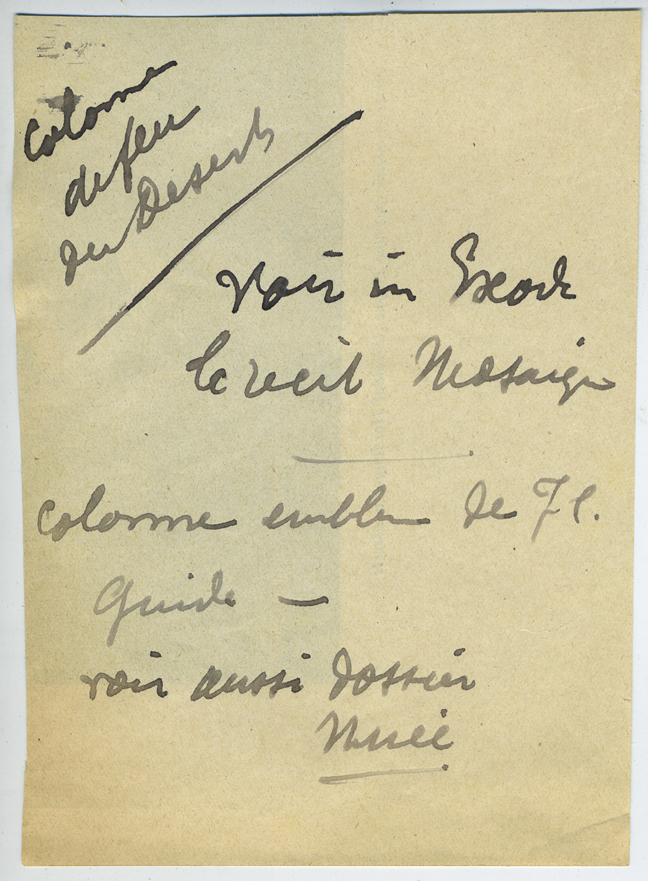 colonne
de feu
du Desert
Voir in Exode
le recit Mosaique
colonne emblem de J C.
Guide —
voir aussi dossier